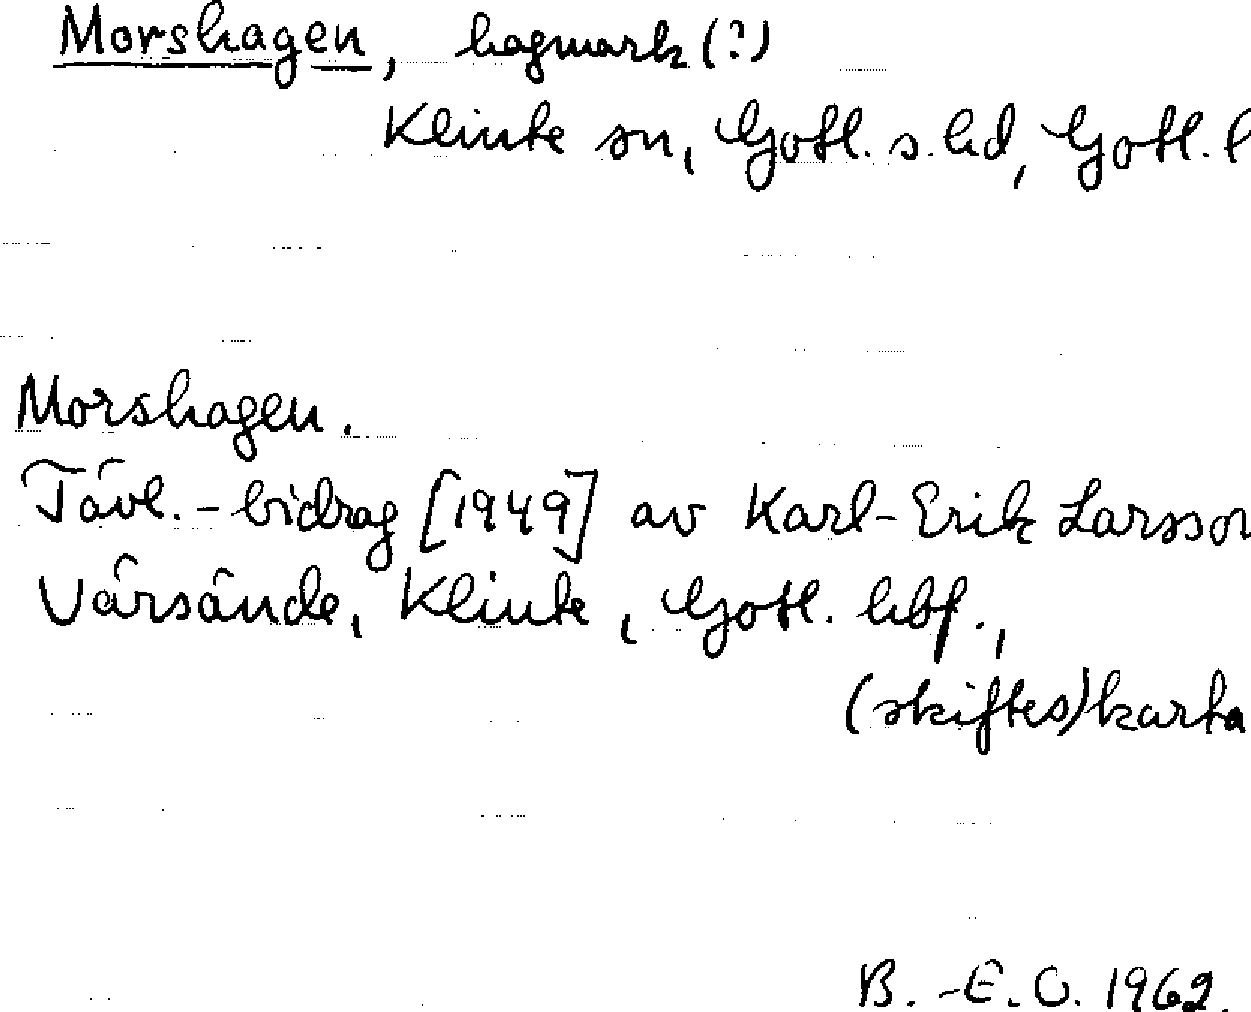 Morshagen, hagmark (?)
Klinte sn, Gotl. s. hd, Gotl. l
Morshagen.
Tävl.-bidrag [1949] av Karl-Erik Larsson
Värsände, Klinte, Gotl. hbf.,
(skiftes)karta
B.-E. O. 1962.